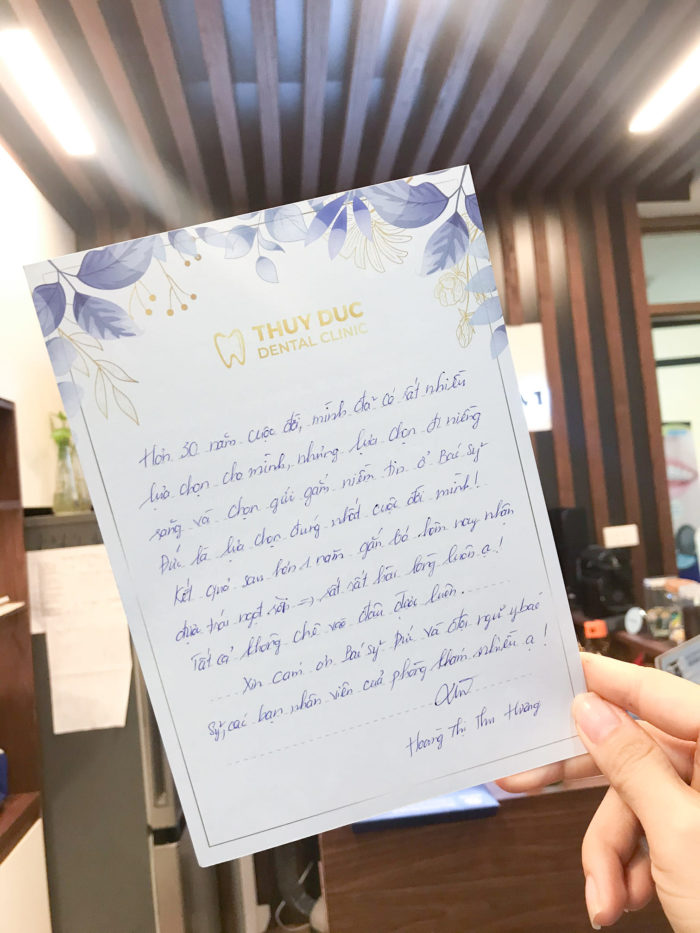 THUY DUC
DENTAL CLINIC
Hơn 30 năm cuộc đời, mình đã có rất nhiều
lựa chọn cho mình, nhưng lựa chọn đi niềng
răng và chọn gửi gắm niềm tin ở Bác Sỹ
Đức là lựa chọn đúng nhất cuộc đời mình!
Kết quả sau hơn 1 năm gắn bó hôm nay nhận
được trái ngọt rồi => rất rất hài lòng luôn ạ!
Tất cả không chê vào đâu được luôn.
Xin cảm ơn Bác Sỹ Đức và đội ngũ y bác
sỹ, các bạn nhân viên của phòng khám nhiều ạ!
Hoàng Thị Thu Hương